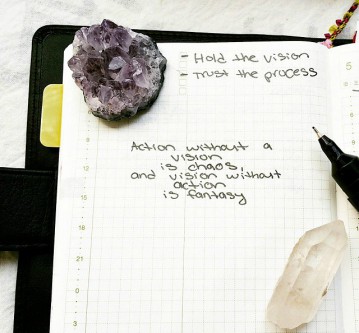 - Hold the vision
- Trust the process
Action without a
vision
is chaos,
and vision without
action
is fantasy
5
9
12
15
18
21
0
3